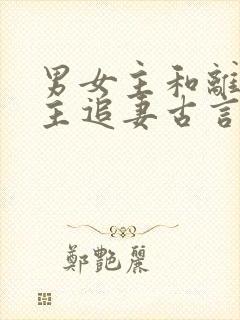 男女主和離
主追妻古言
鄭艷麗